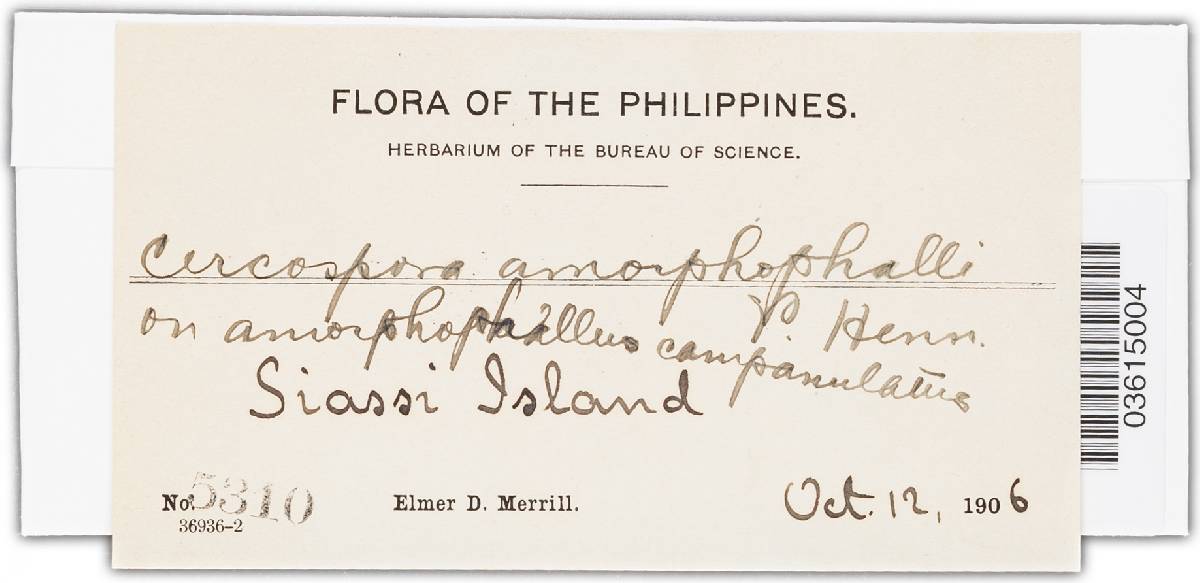 FLORA OF THE PHILIPPINES.
HERBARIUM OF THE BUREAU OF SCIENCE.
Cercospora amorphophalli
P Henn.
on amorphophallus campanulatus
Siassi Island
No. 5310 Elmer D. Merrill. Oct. 12, 1906
36936-2
03615004